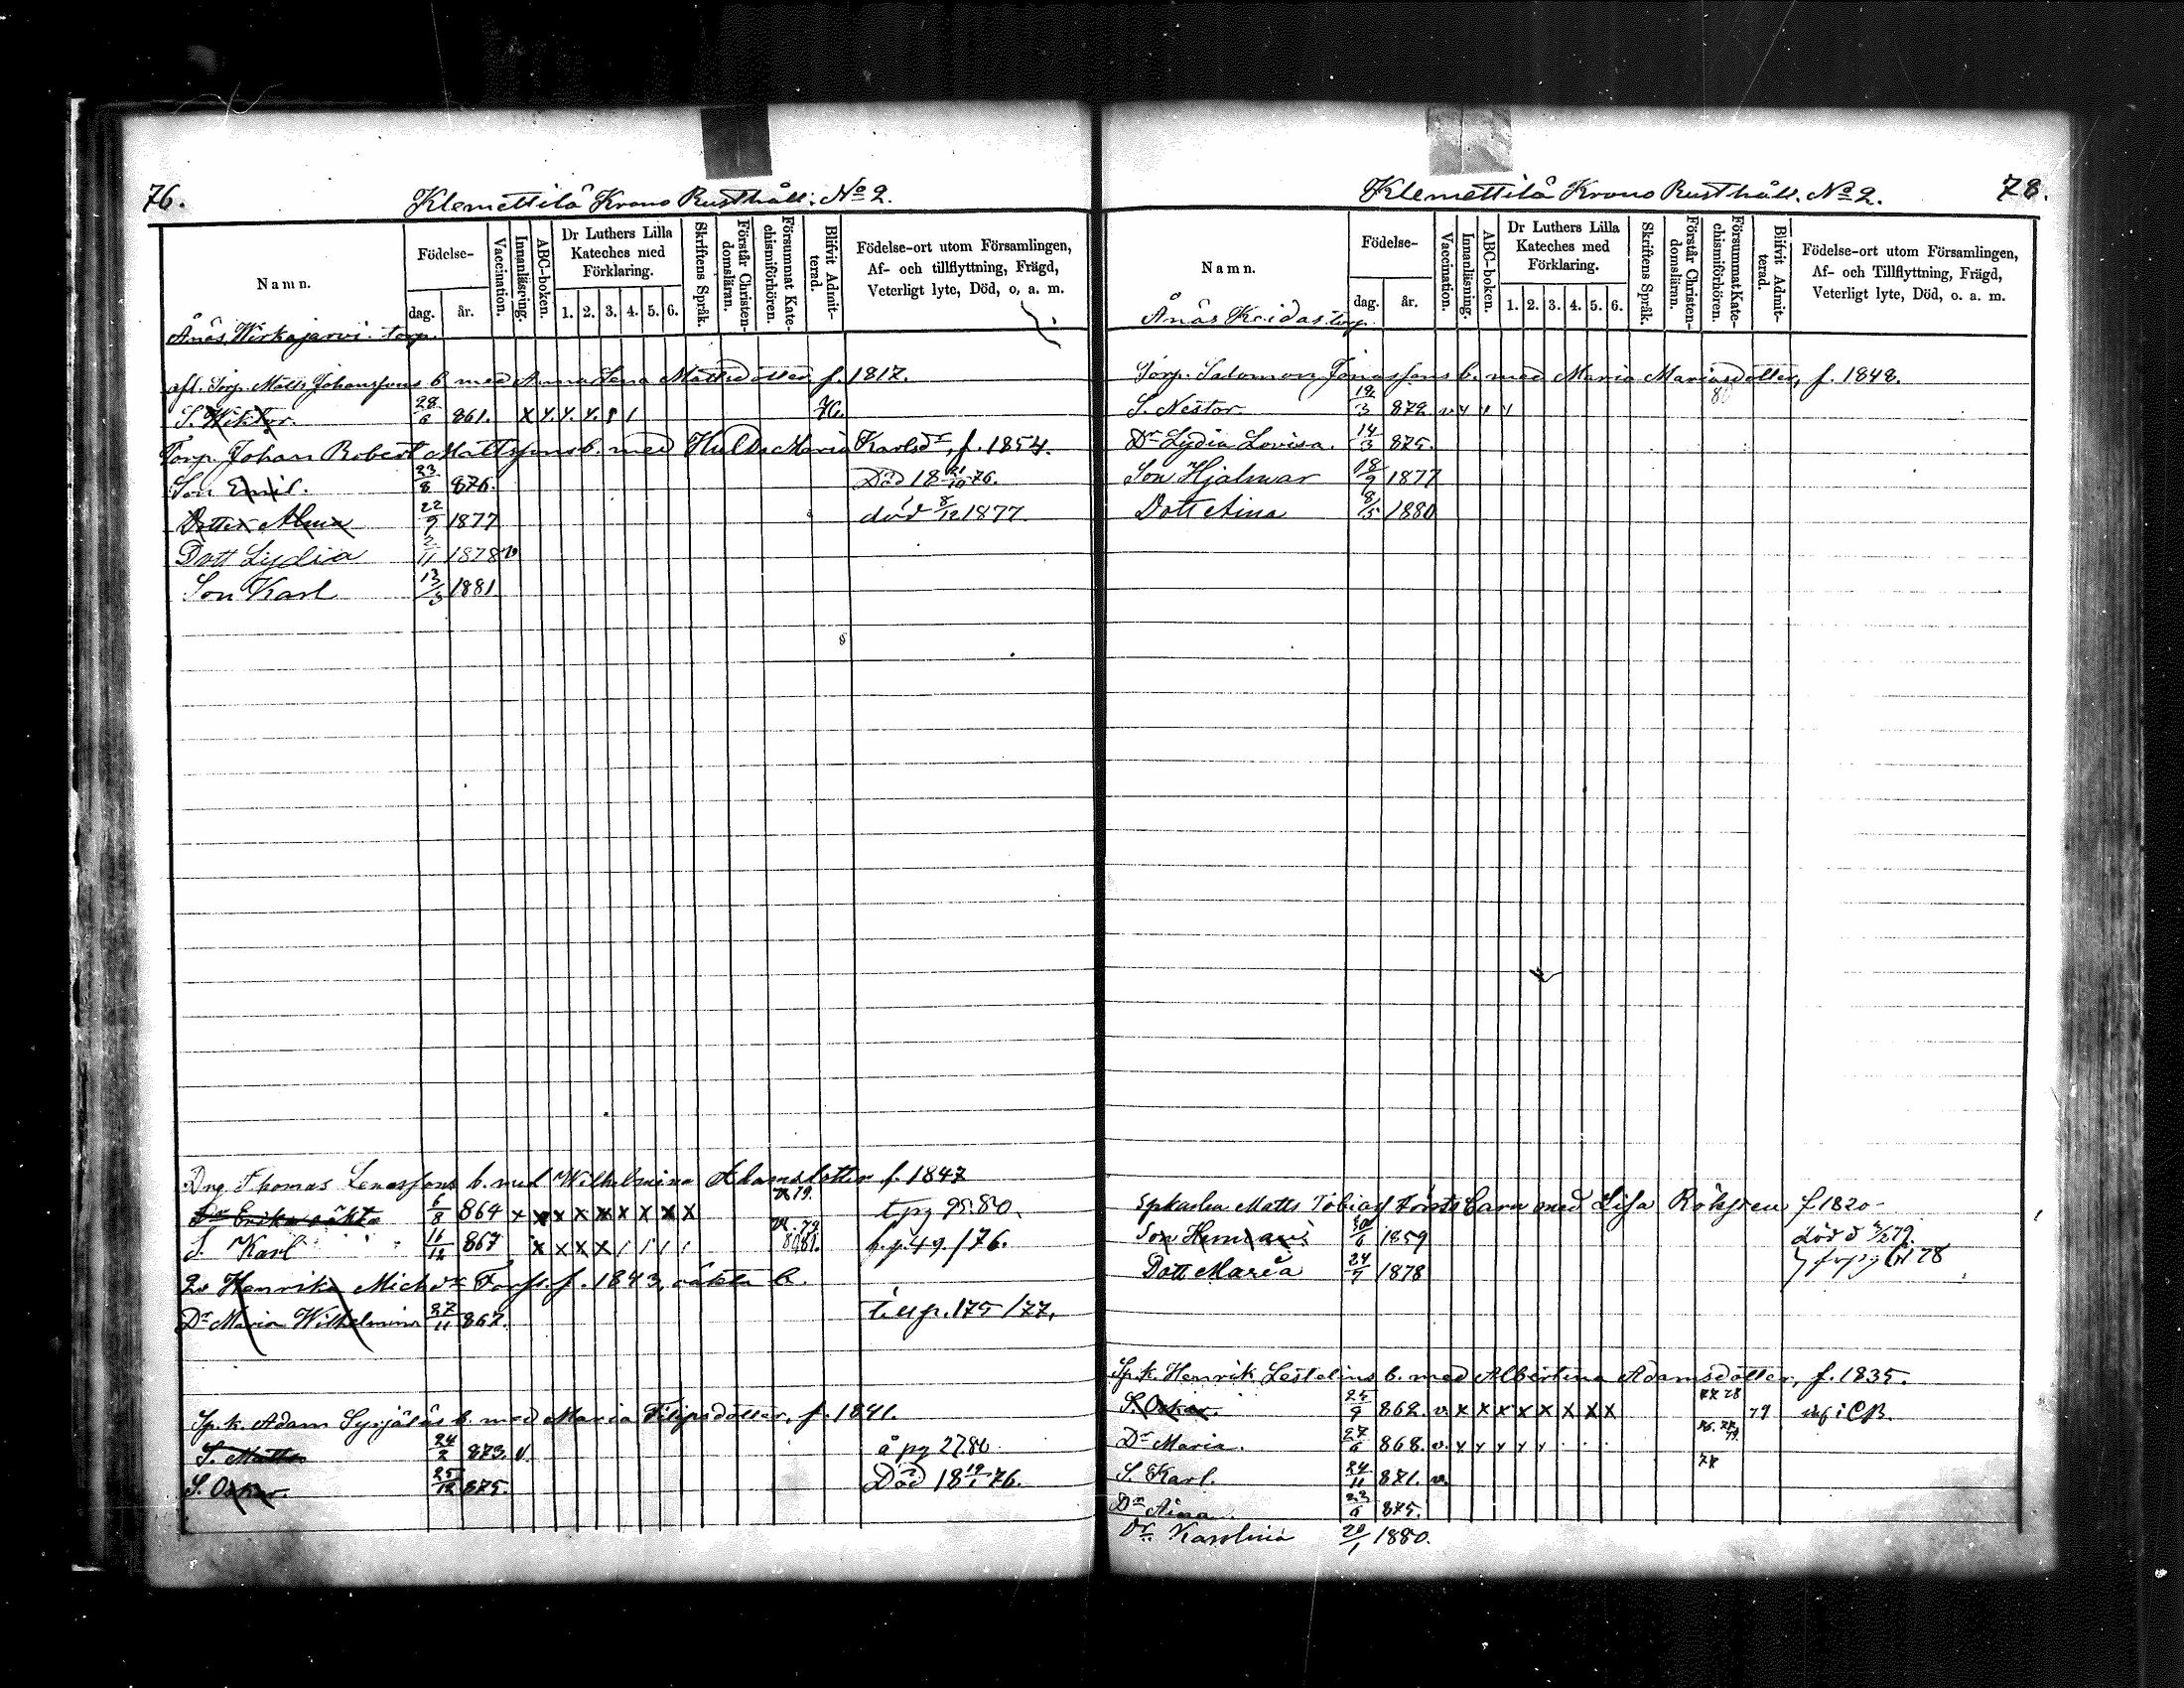 76.
Klemettilä Krono Rusthåll. No 2.
Namn.
Födelse-
dag.
år.
Vaccination.
Innanläsning.
ABC-boken.
Dr Luthers Lilla Kateches med Förklaring.
1. 2. 3. 4. 5. 6.
Skriftens Språk.
Förstår Christendomsläran.
Försummat Katechismiförhören.
Blifvit Admitterad.
Födelse-ort utom Församlingen,
Af- och tillflyttning, Frägd,
Veterligt lyte, Död, o. a. m.
Ånäs Wirkajarvi torp.
afl. Torp. Matts Johanssons b. med Anna Lena Mattsdotter f. 1817.
S. Wiktor. 28/6 861. 76.
Torp. Johan Robert Mattssons b. med Hulda Maria Karlsdr, f. 1854.
Son Emil. 23/8 876. Död 18 21/10 76.
Dotter Alma 22/9 1877 död 8/12 1877
Dott Lydia 2/11 1878 v
Son Karl 13/3 1881
Drg. Thomas Lenassons b. med Wilhelmina Adamsdotter f. 1847
Dr Erika oäkta 6/8 864 x x x x x x x x x 79. t pg 95.80.
S. Karl 16/12 867 x x x x 79. 80 81. h.p. 49./76.
Henrika Michdr f. 1843, oäkta b.
Dr Maria Wilhelmina 27/11 867. p. 175/77.
Sp.k. Adam Syrjäläs b. med Maria Filipsdotter, f. 1841.
S. Matts 24/2 873. v å pg 27 80
S. Oskar. 25/12 875. Död 18 19/1 76.
78.
Klemettilä Krono Rusthåll. No 2.
Namn.
Födelse-
dag.
år.
Vaccination.
Innanläsning.
ABC-boken.
Dr Luthers Lilla Kateches med Förklaring.
1. 2. 3. 4. 5. 6.
Skriftens Språk.
Förstår Christendomsläran.
Försummat Katechismiförhören.
Blifvit Admitterad.
Födelse-ort utom Församlingen,
Af- och Tillflyttning, Frägd,
Veterligt lyte, Död, o. a. m.
Ånäs Keidas torp.
Torp. Salomon Jonassons b. med Maria Mariasdotter, f. 1848.
S. Nestor 18/3 872 v
Dr Lydia Lovisa. 14/3 875.
Son Hjalmar 18/9 1877
Dott Aina 8/5 1880
Matts Tobias barn med Lisa f 1820
Son Hemani 30/6 1859 död
Dott Maria 24/7 1878 78
Sp.k. Henrik Lestelins b. med Albertina Adamsdotter, f. 1835.
S. Oskar. 25/9 862. v. x x x x x x x x 77 78 79 i CB.
Dr Maria. 27/6 868. v. 79.
S. Karl. 24/11 871. v.
Dr Aina 23/6 875.
Dr. Karolina 20/1 1880.